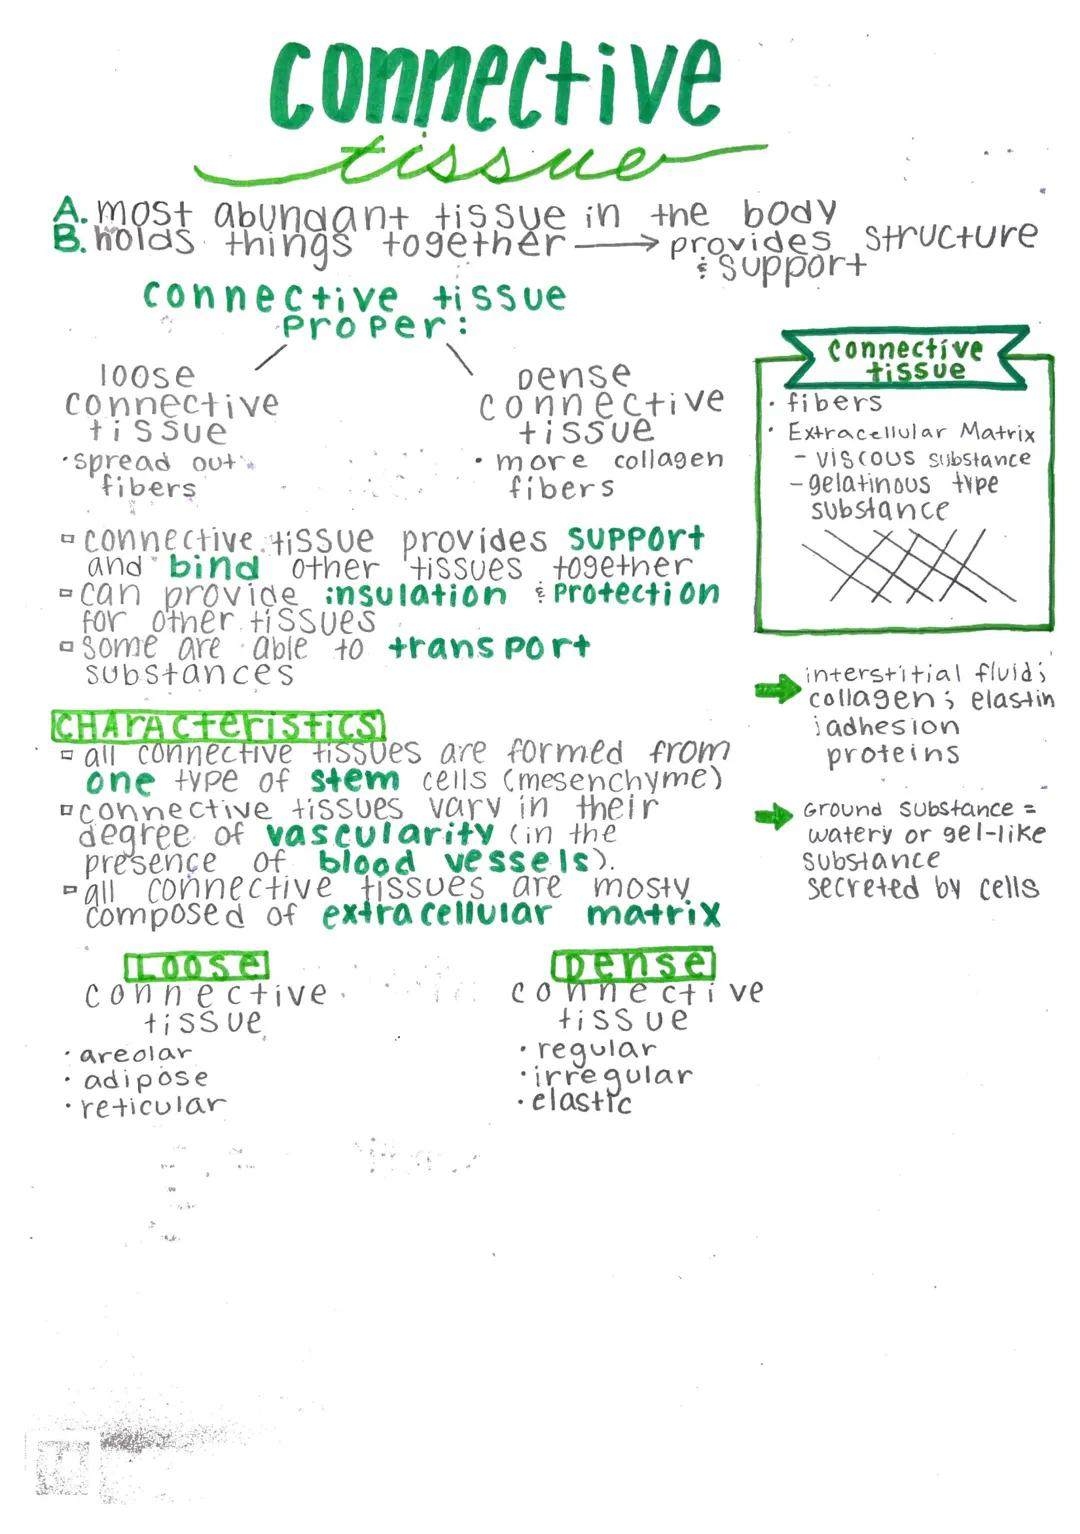 connective
tissue
A. most abundant tissue in the body
B. holds things together → provides structure
& support
connective tissue
proper:
loose
connective
tissue
• spread out
fibers
Dense
connective
tissue
• more collagen
fibers
connective
tissue
• fibers
• Extracellular Matrix
- viscous substance
- gelatinous type
substance
▫ connective tissue provides support
and bind other tissues together
▫ can provide insulation & protection
for other tissues
▫ some are able to transport
substances
➡ interstitial fluid;
collagen; elastin
; adhesion
proteins
CHARACteristics
▫ all connective tissues are formed from
one type of stem cells (mesenchyme)
▫ connective tissues vary in their
degree of vascularity (in the
presence of blood vessels).
▫ all connective tissues are mosty
composed of extracellular matrix
➡ Ground substance =
watery or gel-like
substance
secreted by cells
Loose
connective
tissue
• areolar
• adipose
• reticular
Dense
connective
tissue
• regular
• irregular
• elastic